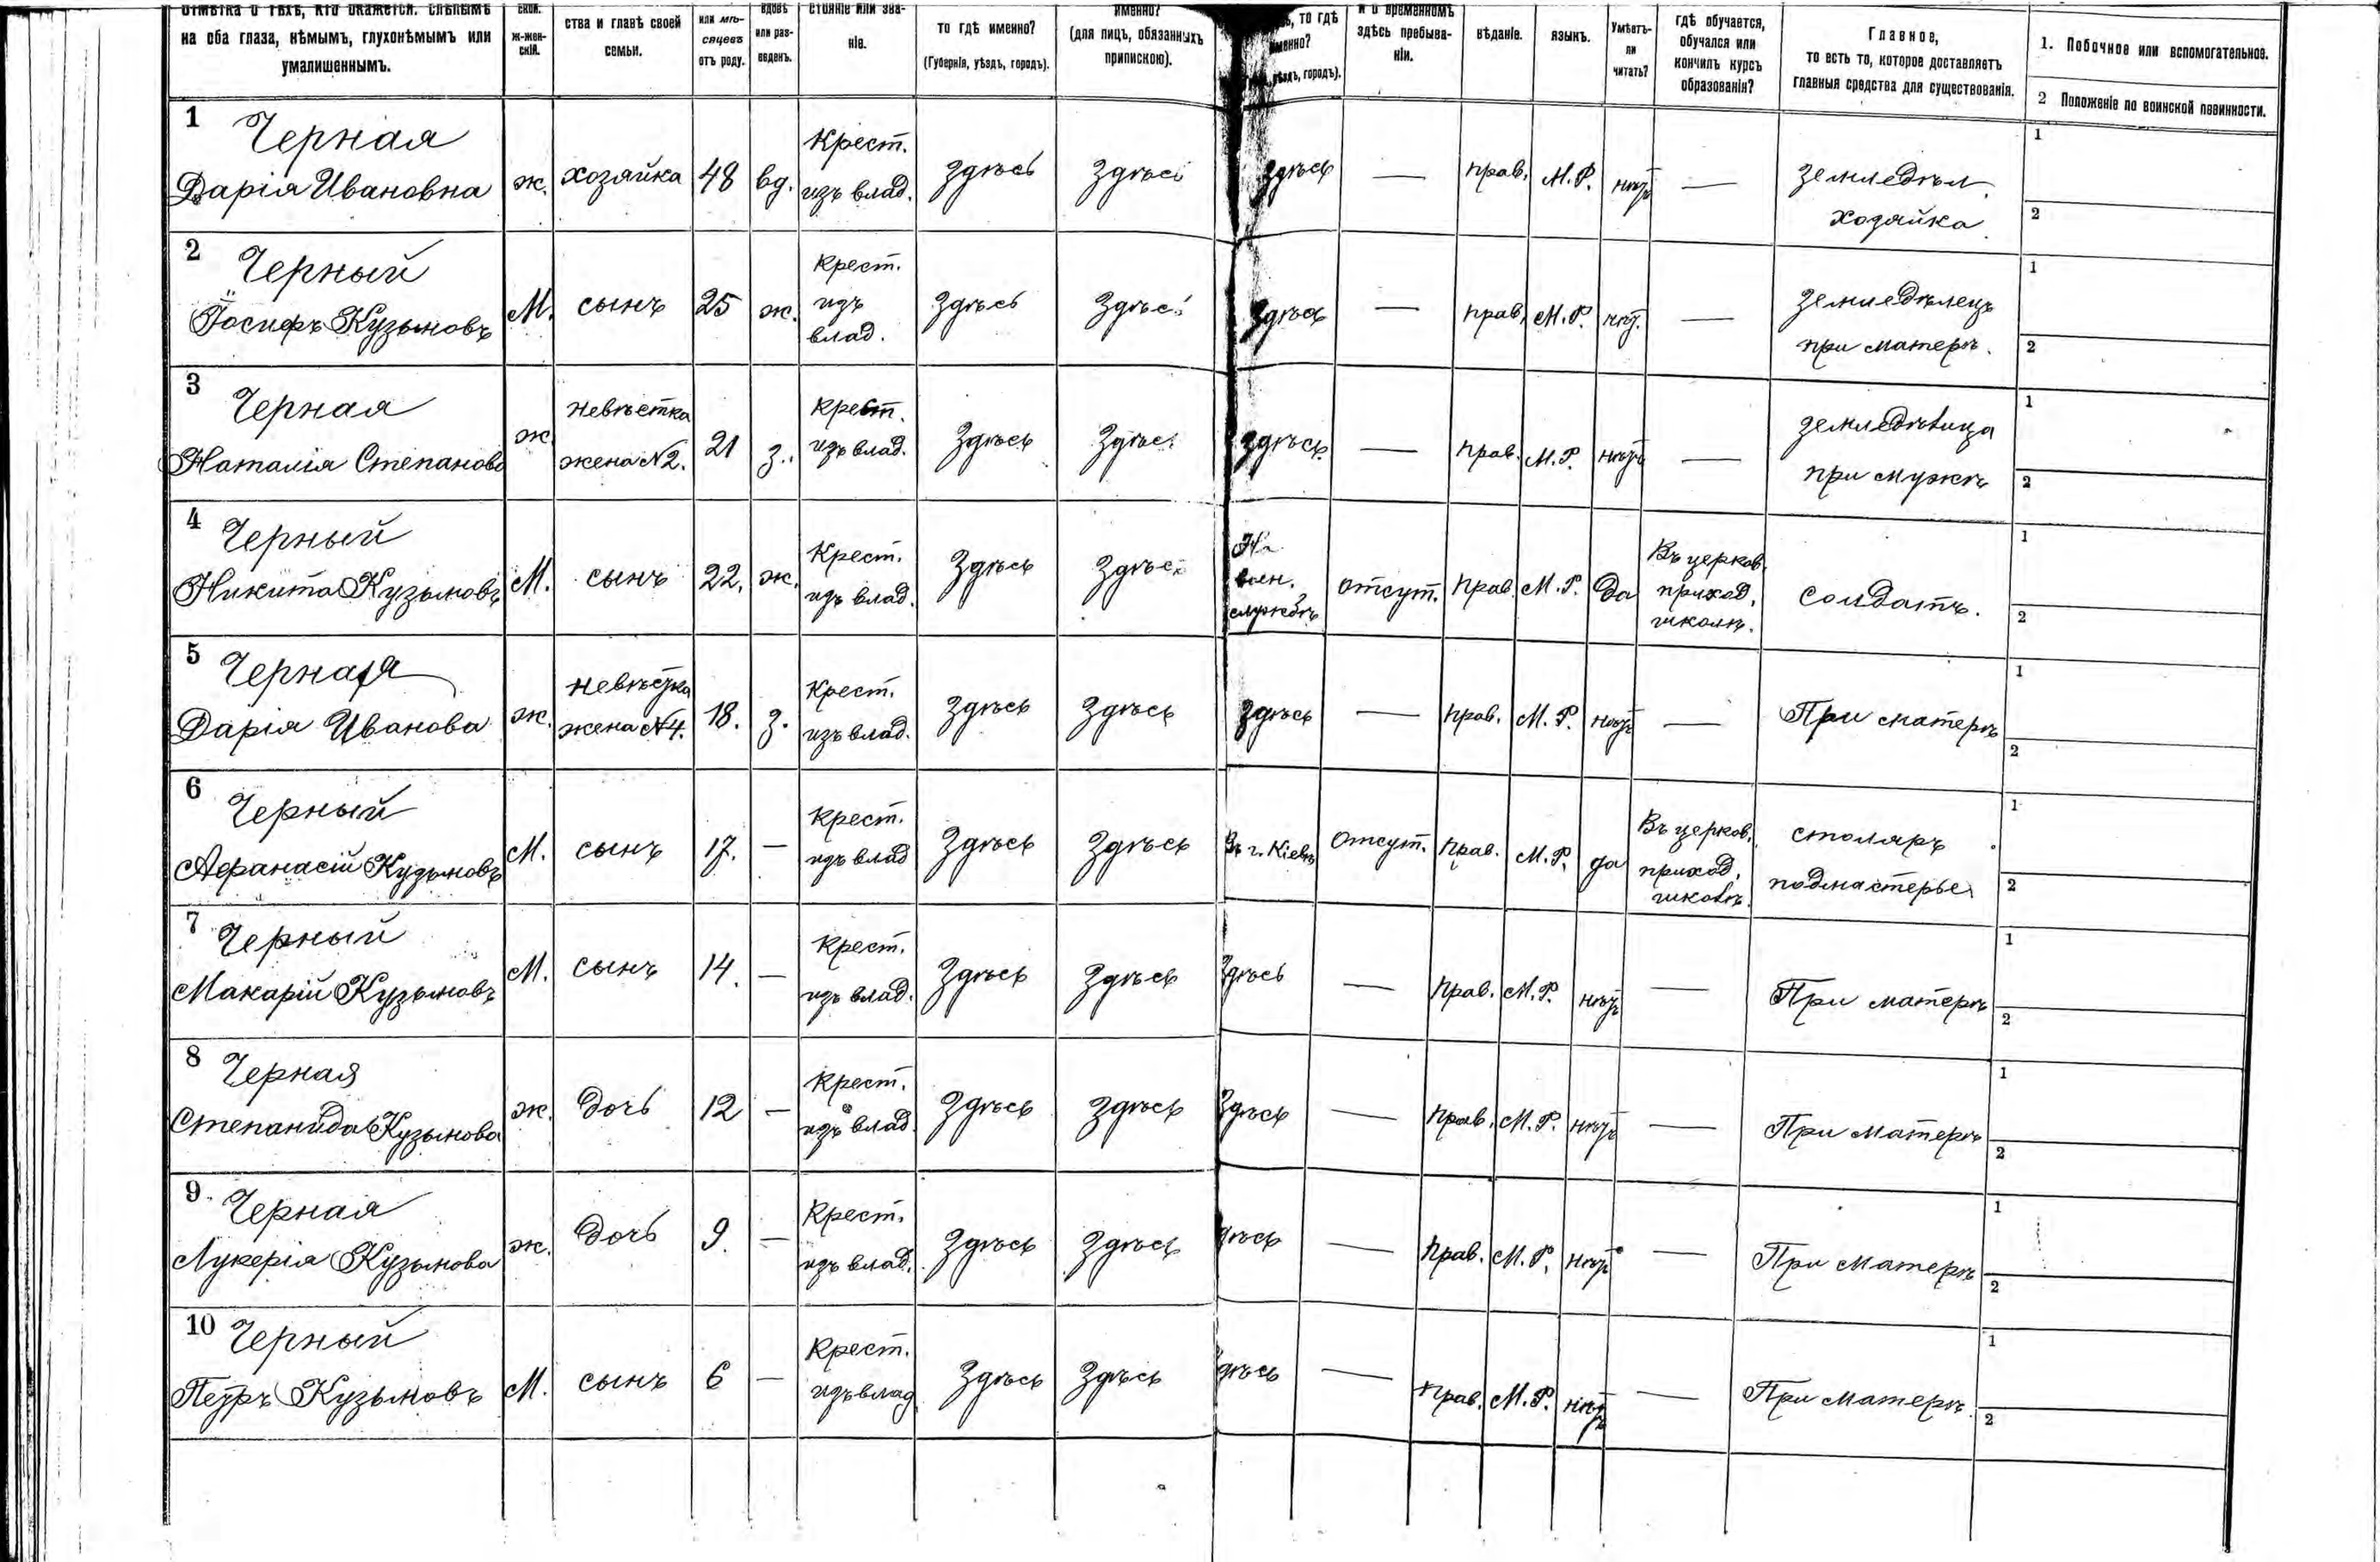 отмѣтка о тѣхъ, кто окажется: слѣпымъ
на оба глаза, нѣмымъ, глухонѣмымъ или
умалишеннымъ.
ской.
ж-жен-
скій.
ства и главѣ своей
семьи.
или мѣ-
сяцевъ
отъ роду.
вдовъ
или раз-
веденъ.
стояніе или зва-
ніе.
то гдѣ именно?
(Губернія, уѣздъ, городъ).
именно?
(для лицъ, обязанныхъ
припискою).
то гдѣ
именно?
уѣздъ, городъ).
и о временномъ
здѣсь пребыва-
ніи.
вѣданіе.
языкъ.
Умѣетъ-
ли
читать?
гдѣ обучается,
обучался или
кончилъ курсъ
образованія?
Главное,
то есть то, которое доставляетъ
главныя средства для существованія.
1. Побочное или вспомогательное.
2 Положеніе по воинской повинности.
1
Черная
Дарія Ивановна
ж.
хозяйка
48
вд.
Крест.
изъ влад.
здѣсь
здѣсь
здѣсь
—
прав.
М.Р.
нѣтъ
—
земледѣл.
хозяйка
1
2
2
Черный
Іосифъ Кузьмовъ
М.
сынъ
25
ж.
Крест.
изъ
влад.
здѣсь
здѣсь
здѣсь
—
прав.
М.Р.
нѣт.
—
земледѣлецъ
при матерѣ.
1
2
3
Черная
Наталія Степанова
ж.
невѣстка
жена №2.
21
з.
Крест.
изъ влад.
здѣсь
здѣсь
здѣсь
—
прав.
М.Р.
нѣтъ
—
при мужѣ
1
2
4
Черный
Никита Кузьмовъ
М.
сынъ
22.
ж.
Крест.
изъ влад.
здѣсь
здѣсь
На
воен.
службѣ
отсут.
прав.
М.Р.
да
Въ церков.
приход.
школѣ.
солдатъ.
1
2
5
Черная
Дарія Иванова
ж.
невѣстка
жена №4.
18.
з.
Крест.
изъ влад.
здѣсь
здѣсь
здѣсь
—
прав.
М.Р.
нѣтъ
—
При матерѣ
1
2
6
Черный
Афанасій Кузьмовъ
М.
сынъ
17.
—
Крест.
изъ влад
здѣсь
здѣсь
Въ г. Кіевѣ
Отсут.
прав.
М.Р.
да
Въ церков.
приход.
школѣ.
столяръ
подмастерье
1
2
7
Черный
Макарій Кузьмовъ
М.
сынъ
14.
—
Крест.
изъ влад.
здѣсь
здѣсь
здѣсь
—
прав.
М.Р.
нѣтъ
—
При матерѣ
1
2
8
Черная
Степанида Кузьмова
ж.
дочь
12
—
Крест.
изъ влад.
здѣсь
здѣсь
здѣсь
—
прав.
М.Р.
нѣтъ
—
При матерѣ
1
2
9.
Черная
Лукерія Кузьмова
ж.
дочь
9.
—
Крест.
изъ влад.
здѣсь
здѣсь
здѣсь
—
прав.
М.Р.
нѣтъ
—
При матерѣ
1
2
10
Черный
Петръ Кузьмовъ
М.
сынъ
6
—
Крест.
изъ влад
здѣсь
здѣсь
здѣсь
—
прав.
М.Р.
нѣтъ
—
При матерѣ.
1
2